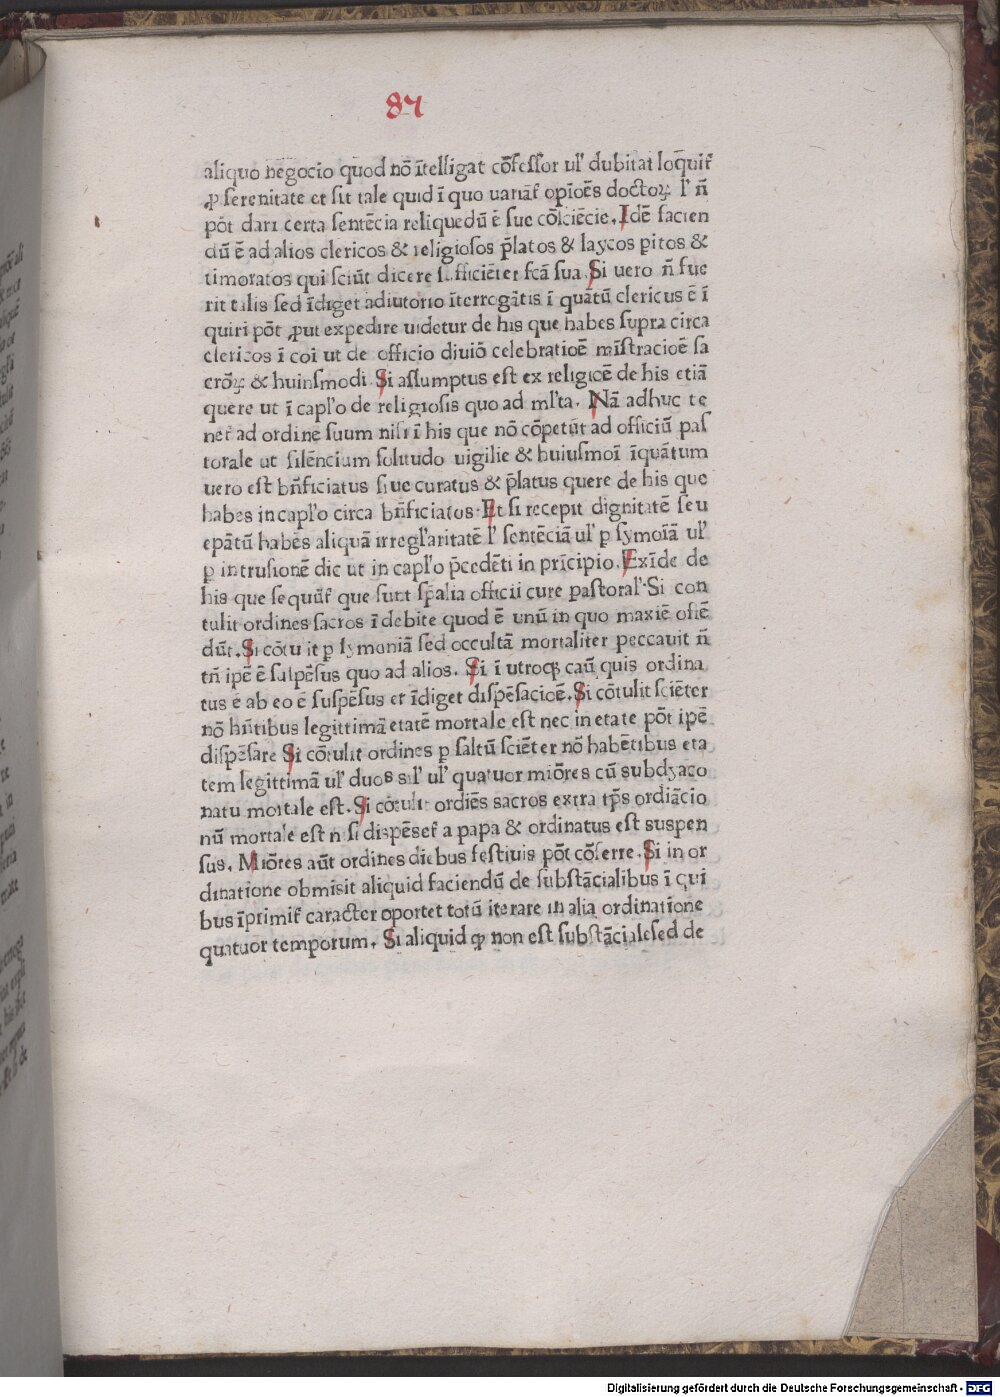 87
aliquo negocio quod nō ītelligat cōfessor ul' dubitat loq̄uit᷑
ꝓ serenitate et sit tale quid ī quo uariāt᷑ opīoēs doctoꝝ l' n̄
pōt dari certa sentēcia reliquēdū ē sue cōsciēcie. Idē facien
dū ē ad alios clericos & religiosos p̄latos & laycos pitos &
timoratos qui sciūt dicere sufficiēter fcā sua. Si uero n̄ fue
rit talis sed īdiget adiutorio īterrogātis ī quātū clericus ē ī
quiri pōt ꝓut expedire uidetur de his que habes supra circa
clericos ī coi ut de officio diuiō celebratioē mīstracioē sa
croꝝ & huinsmodi. Si assumptus est ex religiōe de his etiā
quere ut ī capl'o de religiosis quo ad ml'ta. Nā adhuc te
net᷑ ad ordinē suum nisi ī his que nō cōpetūt ad officiū pas
torale ut silēncium solitudo uigilie & huiusmoi īquātum
uero est bn̄ficiatus siue curatus & p̄latus quere de his que
habes in capl'o circa bn̄ficiatos. Et si recepit dignitatē seu
epātū habēs aliquā irregl'aritatē l' sentēciā ul' p symoīā ul'
p intrusionē dic ut in capl'o p̄cedēti in prīcipio. Exīde de
his que sequūt᷑ que sunt sp̄alia officii cure pastoral'. Si con
tulit ordines sacros īdebite quod ē unū in quo maxiē ofiē
dūt. Si cōtulit p symoniā sed occultā mortaliter peccauit n̄
tn̄ ipē ē suspēsus quo ad alios. Si ī utroqꝫ caū quis ordina
tus ē ab eo ē suspēsus et īdiget dispēsacioē. Si cōtulit sciēter
nō hn̄tibus legittimā etatē mortale est nec in etate pōt ipē
dispēsare Si cōtulit ordines p saltū sciēter nō habētibus eta
tem legittimā ul' duos sil' ul' quatuor miōres cū subdyaco
natu mortale est. Si cōtulit ordiēs sacros extra tp̄s ordiācio
nū mortale est n si dispēset᷑ a papa & ordinatus est suspen
sus. Miōres aūt ordines diebus festiuis pōt cōferre. Si in or
dinatione obmisit aliquid faciendū de substācialibus ī qui
bus īprimit᷑ caracter oportet totū iterare in alia ordinatione
quatuor temporum. Si aliquid qꝫ non est substācialesed de
Digitalisierung gefördert durch die Deutsche Forschungsgemeinschaft - DFG